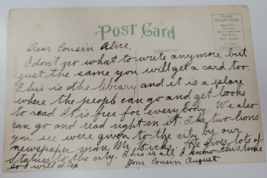 Post Card
Dear Cousin Alice,
I don't go what to write anymore but
just the same you will get a card too.
This is the library and it is a place
where the people can go and get books
to read. It is free for every body. We also
can go and read right in it. The two lions
you see were given to the city by our
newspaper man, Mr. He gives lots of
statues to the city. This is all I know this time
so will
Your cousin August